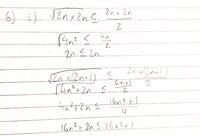 6) i) √2n×2n ≤ 2n+2n/2
√4n² ≤ 4n/2
2n ≤ 2n
√2n×(2n+1) ≤ 2n+(2n+1)/2
√4n²+2n ≤ 4n+1/2
4n²+2n ≤ 16n²+1/4
16n²+8n ≤ 16n²+1